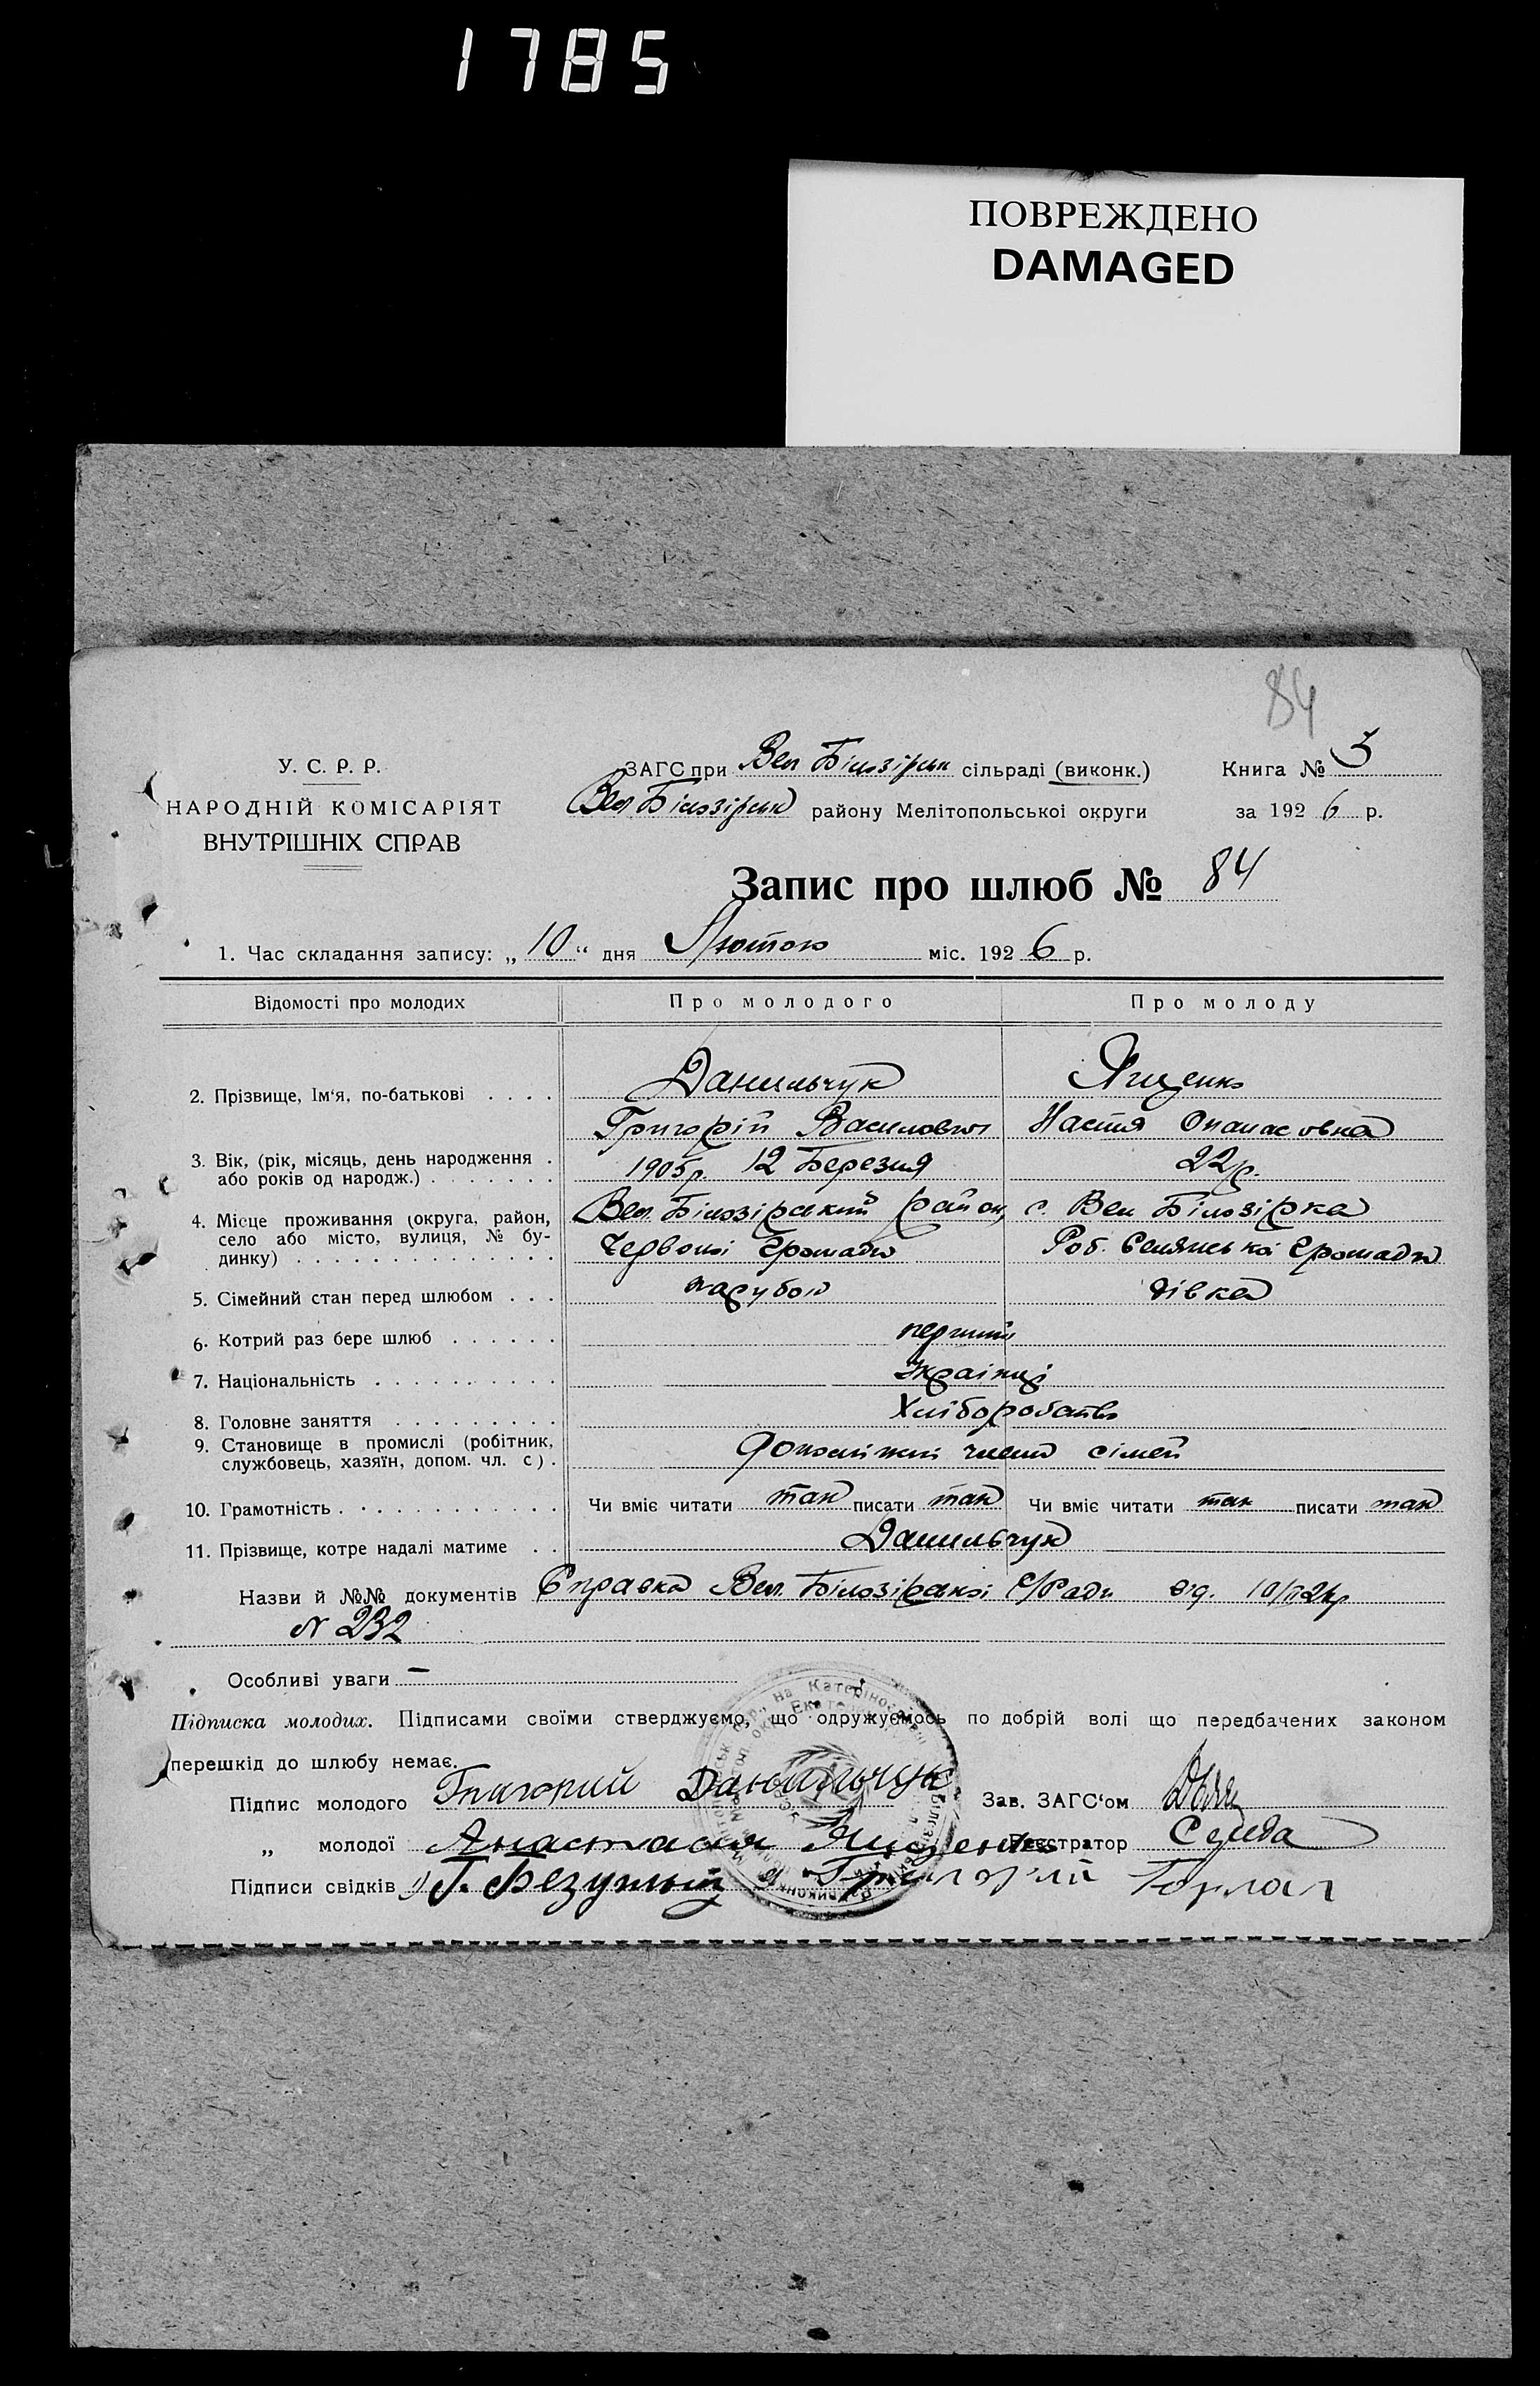 1785
ПОВРЕЖДЕНО
DAMAGED
84
У. С. Р. Р.
НАРОДНІЙ КОМІСАРІЯТ
ВНУТРІШНІХ СПРАВ
ЗАГС при Вел Білозірськ сільраді (виконк.) Книга № 3
Вел Білозірськ району Мелітопольської округи за 1926 р.
Запис про шлюб № 84
1. Час складання запису: „10“ дня Лютого міс. 1926 р.
Відомості про молодих Про молодого Про молоду
2. Прізвище, Ім'я, по-батькові . . . . Данильчук Ященко
Григорій Василович Настя Опанасовка
3. Вік, (рік, місяць, день народження . або років од народж.) . . . . . . . 1905р. 12 Березня 22р.
4. Місце проживання (округа, район, село або місто, вулиця, № будинку) . . . . . . . . . . . . . . Вел. Білозірський район, с. Вел Білозірка
Червоної Громади Роб. Селянської Громади
5. Сімейний стан перед шлюбом . . . парубок дівка
6. Котрий раз бере шлюб . . . . . . перший
7. Національність . . . . . . . . . . Українці
8. Головне заняття . . . . . . . . . Хліборобство
9. Становище в промислі (робітник, службовець, хазяїн, допом. чл. с) . члени сімей
10. Грамотність . . . . . . . . . . . . Чи вміє читати так писати так Чи вміє читати так писати так
11. Прізвище, котре надалі матиме . . Данильчук
Назви й №№ документів Справка Вел. Білозірської С/Ради від.
N 232
Особливі уваги —
Підписка молодих. Підписами своїми стверджуємо, що одружуємось по добрій волі що передбачених законом
перешкід до шлюбу немає.
Підпис молодого Григорий Данильчук Зав. ЗАГС'ом
„ молодої Анастасия Ященко Реєстратор Середа
Підписи свідків 1) Г. Безуглый 2) Григорій